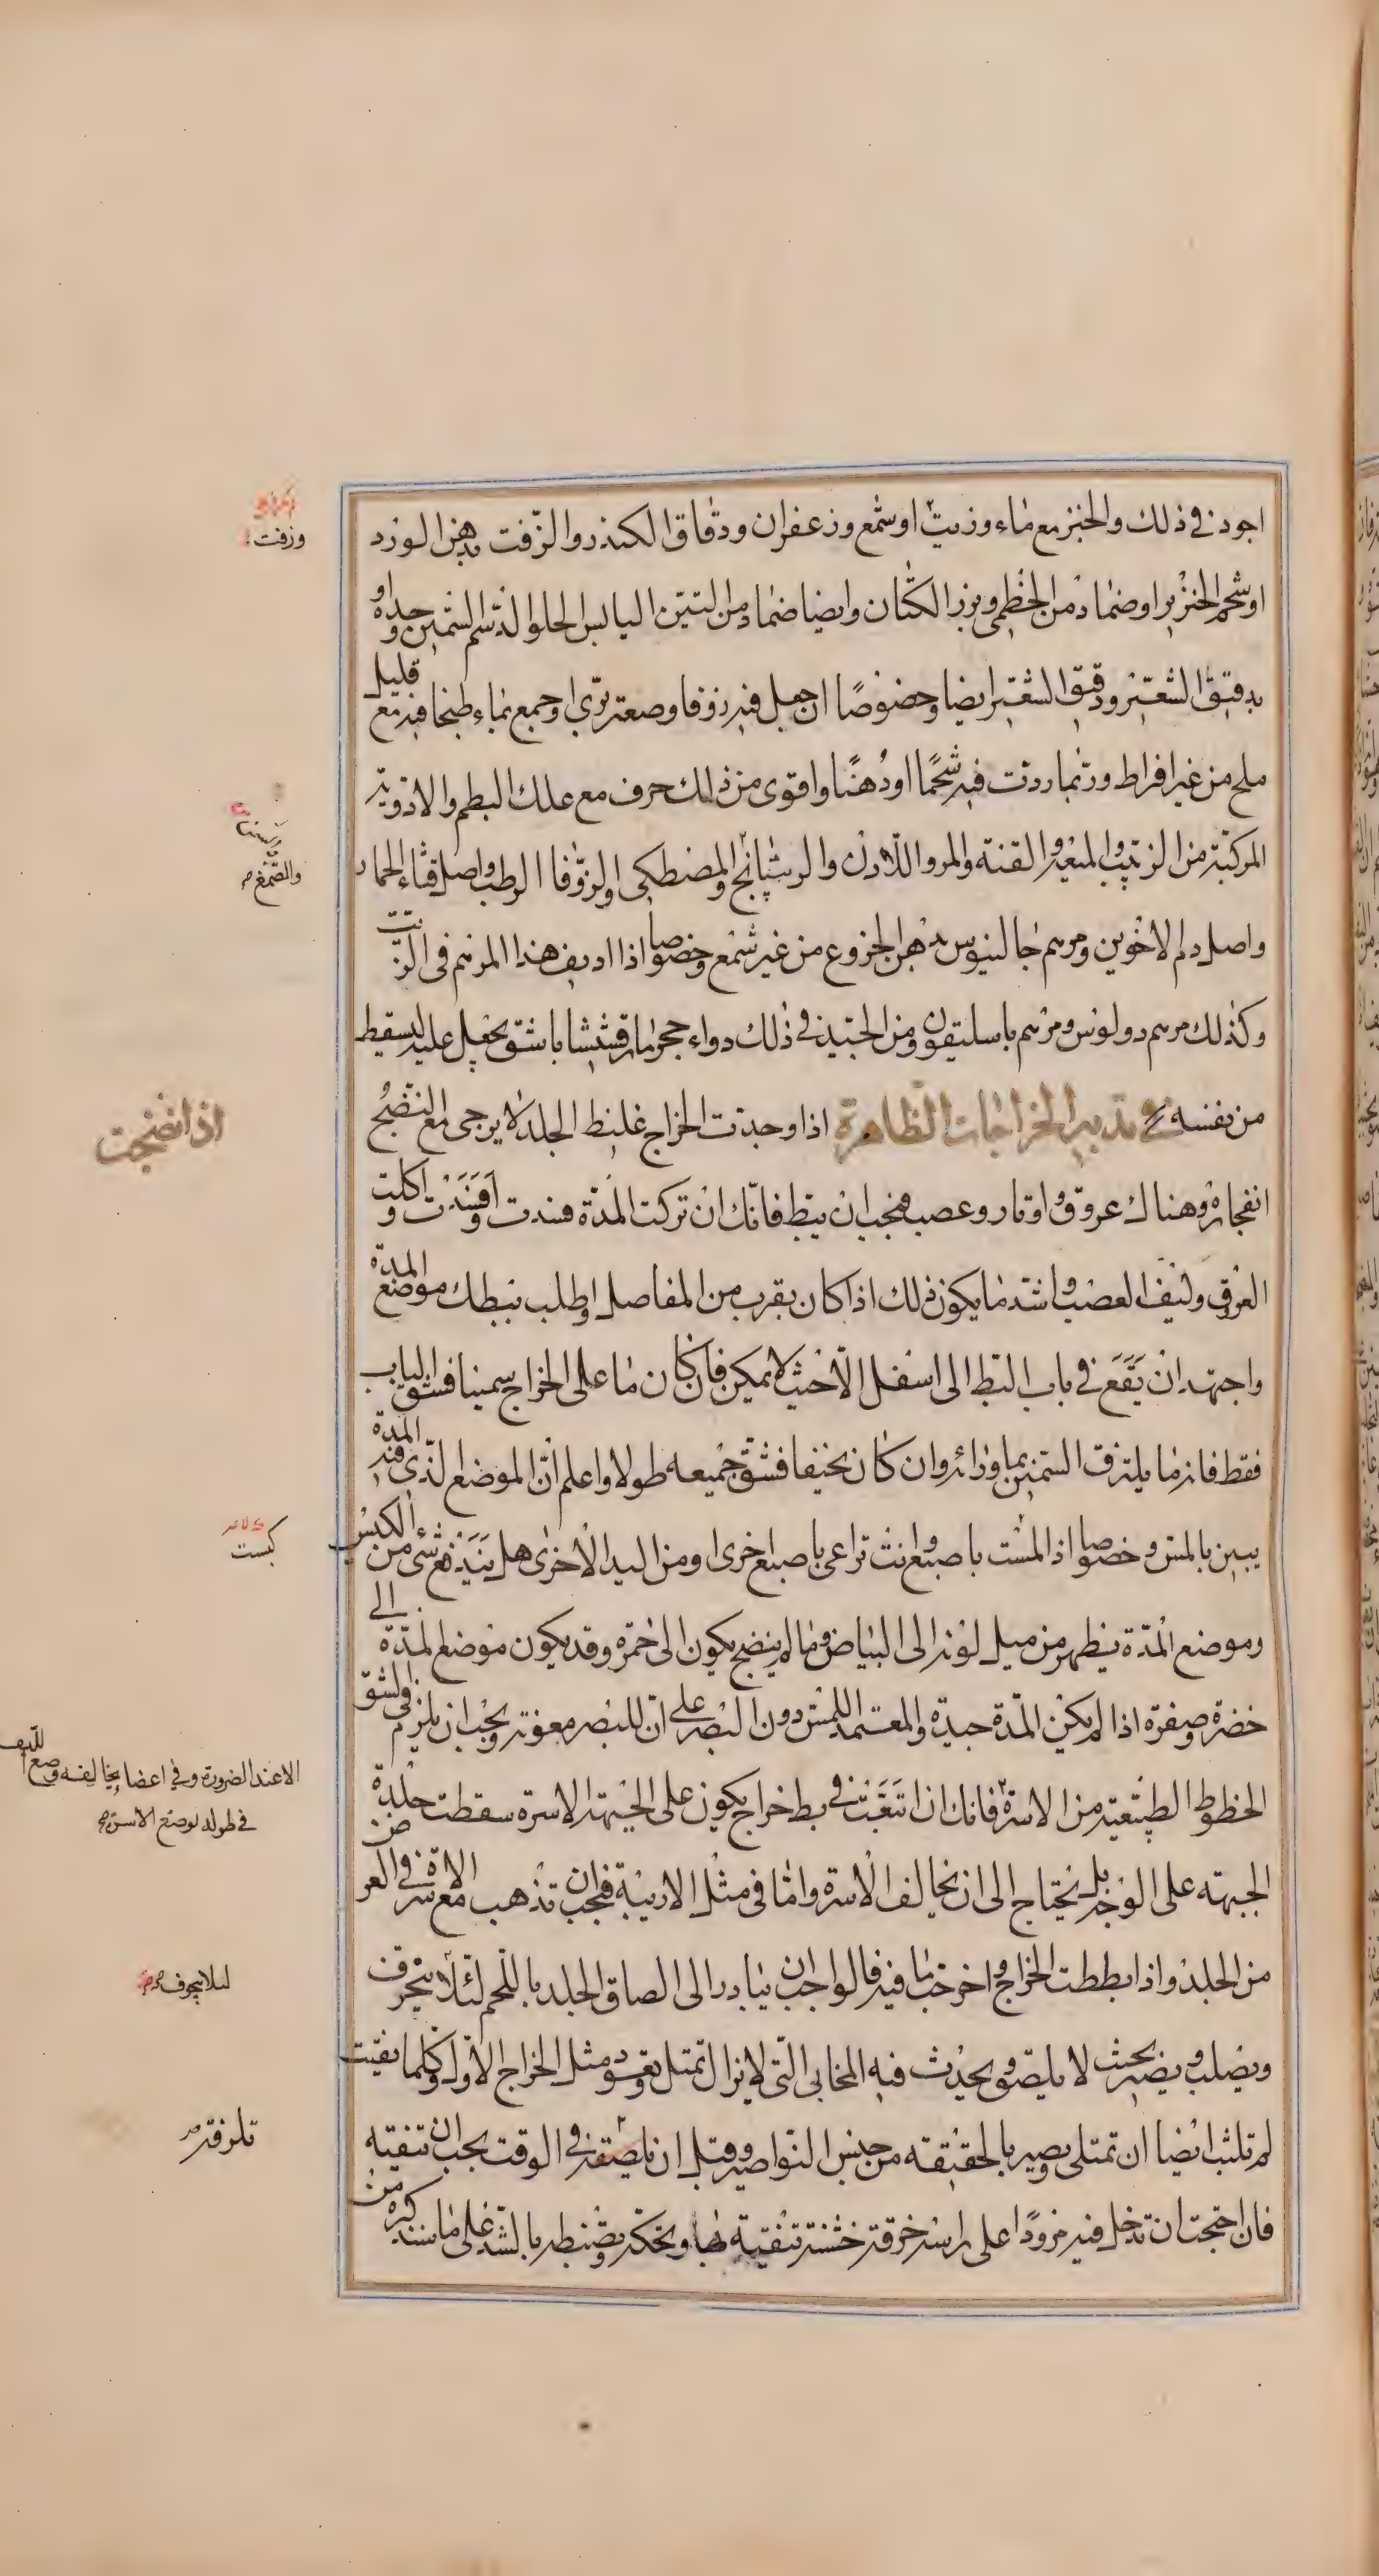 اجود في ذلك والخبز مع ماء وزيت او شمع وزعفران ودقاق الكندر والزفت بدهن الورد
او شحم الخنزير او ضماد من الخطمي وبزر الكتان وايضا ضماد من التين اليابس الحلو الدسم السمين وحده او
بدقيق الشعير ودقيق الشعير ايضا وخصوصا ان جعل فيه زوفا وصعتر بري او جمع بماء طبخا فيه مع قليل
ملح من غير افراط وربما زدت فيه شحما او دهنا واقوى من ذلك حرف مع علك البطم والادوية
المركبة من الزيت والميعة والقنة والمر واللادن والريتيانج والمصطكي والزوفا الرطب واصل قثاء الحمار
واصل دم الاخوين ومرهم جالينوس بدهن الخروع من غير شمع وخصوصا اذا اديف هذا المرهم في الزيت
وكذلك مرهم دولونس ومرهم باسليقون ومن الجيد في ذلك دواء حجر مارقشيشا باشق يجعل عليه ليسقط
من نفسه في تدبير الخراجات الظاهرة اذا وجدت الخراج غليظ الجلد لا يرجى مع النضج
انفجاره وهناك عروق واوتار وعصب فيجب ان يبط فانك ان تركت المدة فسدت وافسدت واكلت
العروق وليف العصب واشد ما يكون ذلك اذا كان بقرب من المفاصل واطلب ببطك موضع المدة
واجتهد ان يقع في باب البط الى اسفل الا حيث لا يمكن فان كان ما على الخراج سمينا فشق الباب
فقط فانه ما يلتزق السمين بما وراءه وان كان نحيفا فشق جميعه طولا واعلم ان الموضع الذي فيه المدة
يبين بالمس وخصوصا اذا لمست باصبع وانت تراعي باصبع اخرى او من اليد الاخرى هل يندفع شيء من الكبس
وموضع المدة يظهر من ميل لونه الى البياض وما لم ينضج يكون الى حمرة وقد يكون موضع المدة الى
خضرة وصفرة اذا لم يكن المدة جيدة والمعتمد اللمس دون البصر على ان للبصر معونة ويجب ان يلزم في الشق
الخطوط الطبيعية من الاسرة فانك ان اتبعت في بط خراج يكون على الجبهة الاسرة سقطت جلدة
الجبهة على الوجه بل يحتاج الى ان يخالف الاسرة واما في مثل الاربية فيجب ان تذهب مع الاسرة في العرض
من الجلد واذا بططت الخراج واخرجت ما فيه فالواجب ان يبادر الى الصاق الجلد باللحم لئلا يتحرف
ويصلب ويصير بحيث لا يلتصق ويحدث فيه المخابي التي لا يزال تمتلي وتعود مثل الخراج الاول وكلما نقيت
لم تلبث ايضا ان تمتلي ويصير بالحقيقة من جنس النواصير وقبل ان يلصقه في الوقت يجب ان تنقيه
فان احتجت ان تدخل فيه مرودا على راسه خرقة خشنة تنقيه بها ويحكه وتضبطه بالشد على ما سنذكره من
وزفت
والصمغ
اذا نضجت
كبست
الا عند الضرورة وفي اعضا يخالفه وضع الليف
في طوله لوضع الاسرة
لئلا يتجوف
تلزقه